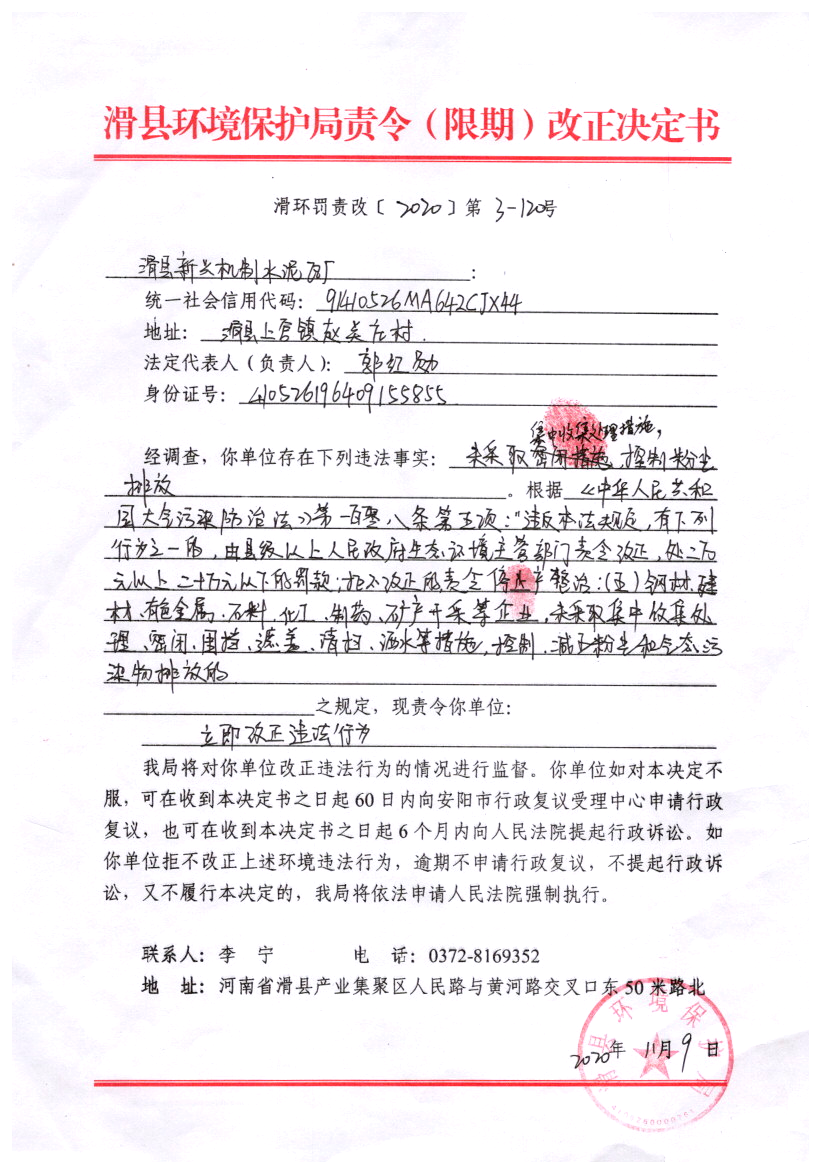 滑县环境保护局责令（限期）改正决定书
滑环罚责改〔2020〕第3-120号
滑县新兴机制水泥瓦厂：
统一社会信用代码：91410526MA642CJX44
地址：滑县上官镇赵关庄村.
法定代表人（负责人）：郭红勋
身份证号：410526196409155855
集中收集处理措施，
经调查，你单位存在下列违法事实：未采取密闭措施，控制粉尘
排放。根据《中华人民共和
国大气污染防治法》第一百零八条第五项："违反本法规定，有下列
行为之一的，由县级以上人民政府生态环境主管部门责令改正，处二万
元以上二十万元以下的罚款；拒不改正的责令停产整治：（五）钢材、建
材、有色金属、石料、化工、制药、矿产开采等企业，未采取集中收集处
理、密闭、围挡、遮盖、清扫、洒水等措施，控制、减少粉尘和气态污
染物排放的
之规定，现责令你单位：
立即改正违法行为
我局将对你单位改正违法行为的情况进行监督。你单位如对本决定不
服，可在收到本决定书之日起60日内向安阳市行政复议受理中心申请行政
复议，也可在收到本决定书之日起6个月内向人民法院提起行政诉讼。如
你单位拒不改正上述环境违法行为，逾期不申请行政复议，不提起行政诉
讼，又不履行本决定的，我局将依法申请人民法院强制执行。
联系人：李 宁 电 话：0372-8169352
地 址：河南省滑县产业集聚区人民路与黄河路交叉口东50米路北
滑县环境保护局
2020年11月9日